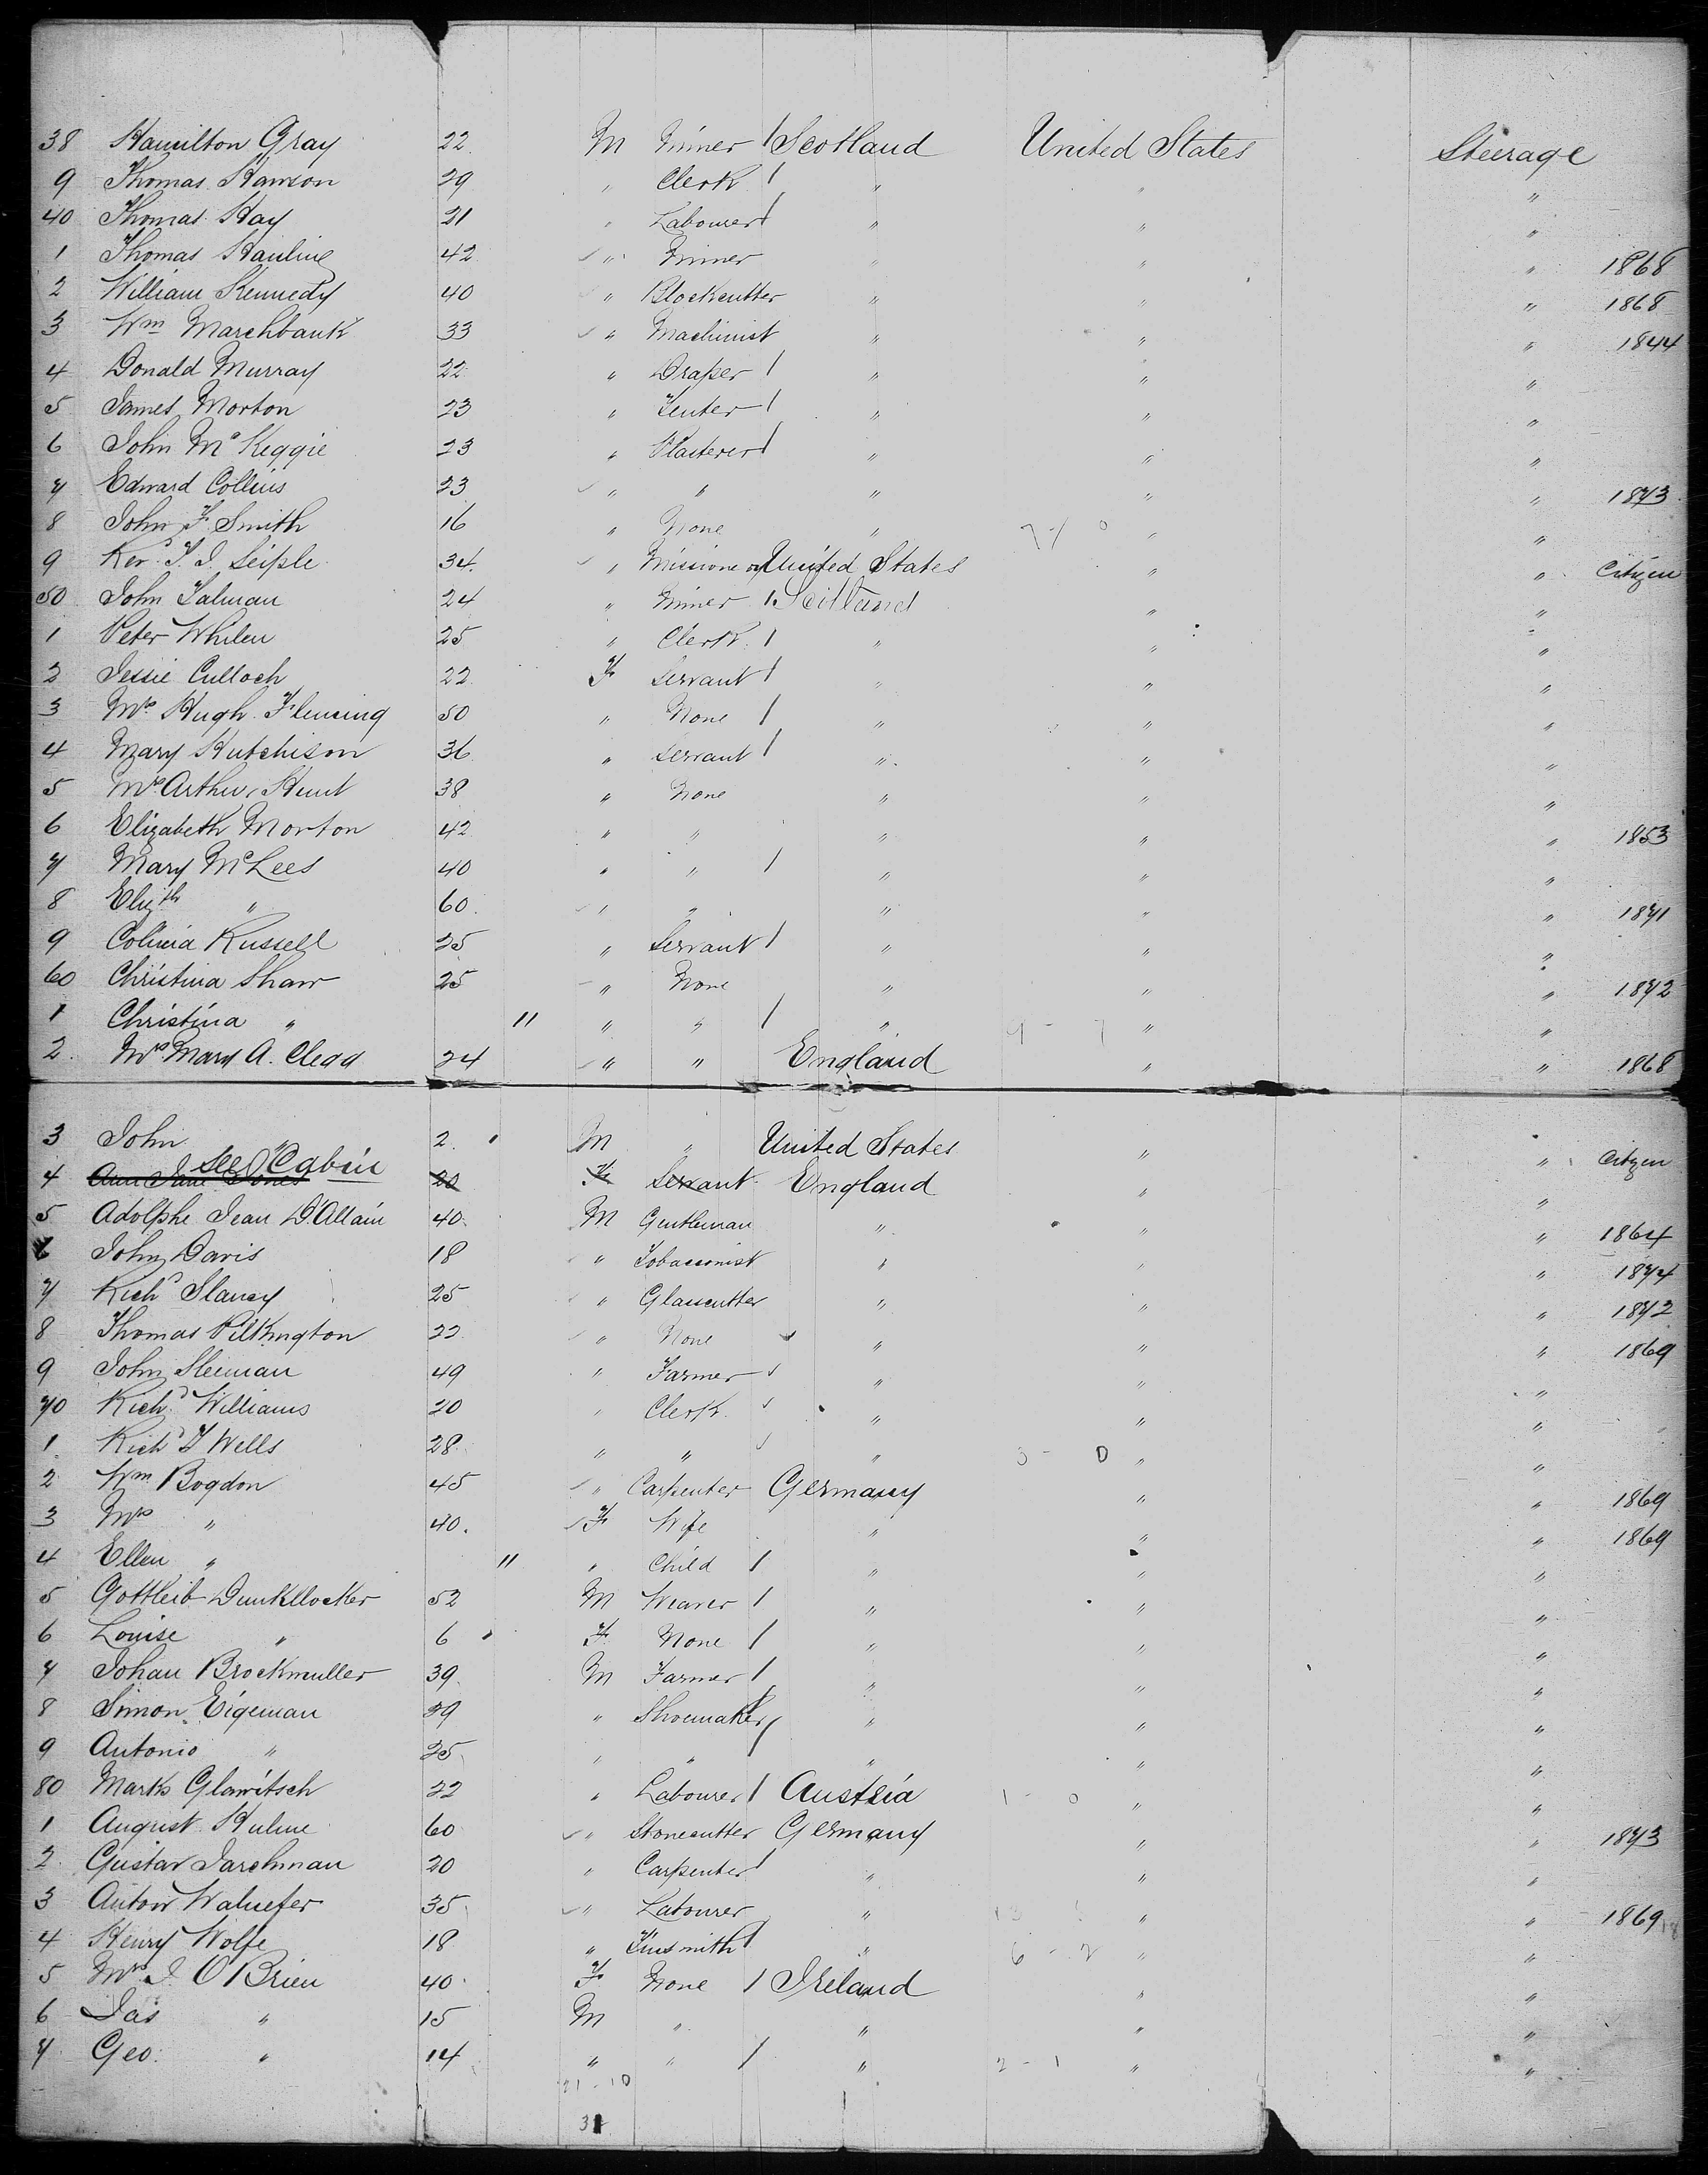 38 Hamilton Gray 22 M Miner / Scotland United States Steerage
9 Thomas Hawson 29 " Clerk / " " "
40 Thomas Hay 21 " Labourer / " " "
1 Thomas 42 " Miner " " " 1868
2 William Kennedy 40 " Blockcutter " " " 1868
3 Wm Marchbank 33 " Machinist " " " 1844
4 Donald Murray 22 " Draper / " " "
5 James Morton 23 " / " " "
6 John McKeggie 23 " Plasterer / " " "
7 Edward Collins 23 " " " " " 1873
8 John F. Smith 16 " None " " "
9 Revd. Seiple 34 " Missionary United States " " Citizen
50 John Talman 24 " Miner / Scotland " "
1 Peter Whilen 25 " Clerk / " " "
2 Jessie Culloch 22 F Servant / " " "
3 Mrs Hugh Fleming 50 " None / " " "
4 Mary Hutchison 36 " Servant / " " "
5 Mrs Arthur Hunt 38 " None " " "
6 Elizabeth Morton 42 " " " " " 1853
7 Mary McLees 40 " " / " " "
8 Elizth " 60 " " " " " 1871
9 Colinia Russell 25 " Servant / " " "
60 Christina Shaw 25 " None " " " 1872
1 Christina " 11 " " / " " "
2 Mrs Mary A. Clegg 24 " " England " " 1868
3 John " 2 M " United States " " Citizen
See Cabin
4 Ann Jane Jones 20 F Servant England " "
5 Adolphe Jean D'Allain 40 M Gentleman " " " 1864
6 John Davis 18 " Tobacconist " " " 1874
7 Richd Slancy 25 " Glasscutter " " " 1872
8 Thomas Pilkington 22 " None " " " 1869
9 John Sleiman 49 " Farmer " " "
70 Richd Williams 20 " Clerk " " "
1 Richd T Wells 28 " " " " "
2 Wm Bogdon 45 " Carpenter Germany " " 1869
3 Mrs " 40 F Wife " " " 1869
4 Ellen " 11 " Child / " " "
5 Gottleib Dunkllocker 52 M Weaver / " " "
6 Louise " 6 F None / " " "
7 Johan Brockmuller 39 M Farmer / " " "
8 Simon Eigeman 39 " Shoemaker / " " "
9 Antonio " 25 " " " " "
80 Marks Glawitsch 22 " Labourer / Austria " "
1 August Hulme 60 " Stonecutter Germany " " 1873
2 Gustav Jarchman 20 " Carpenter / " " "
3 Anton 35 " Labourer " " " 1869
4 Henry Wolfe 18 " Tinsmith / " " "
5 Mrs J. O'Brien 40 F None / Ireland " "
6 Jas " 15 M " " " "
7 Geo. " 14 " " / " 2 - 1 " "
21 - 10